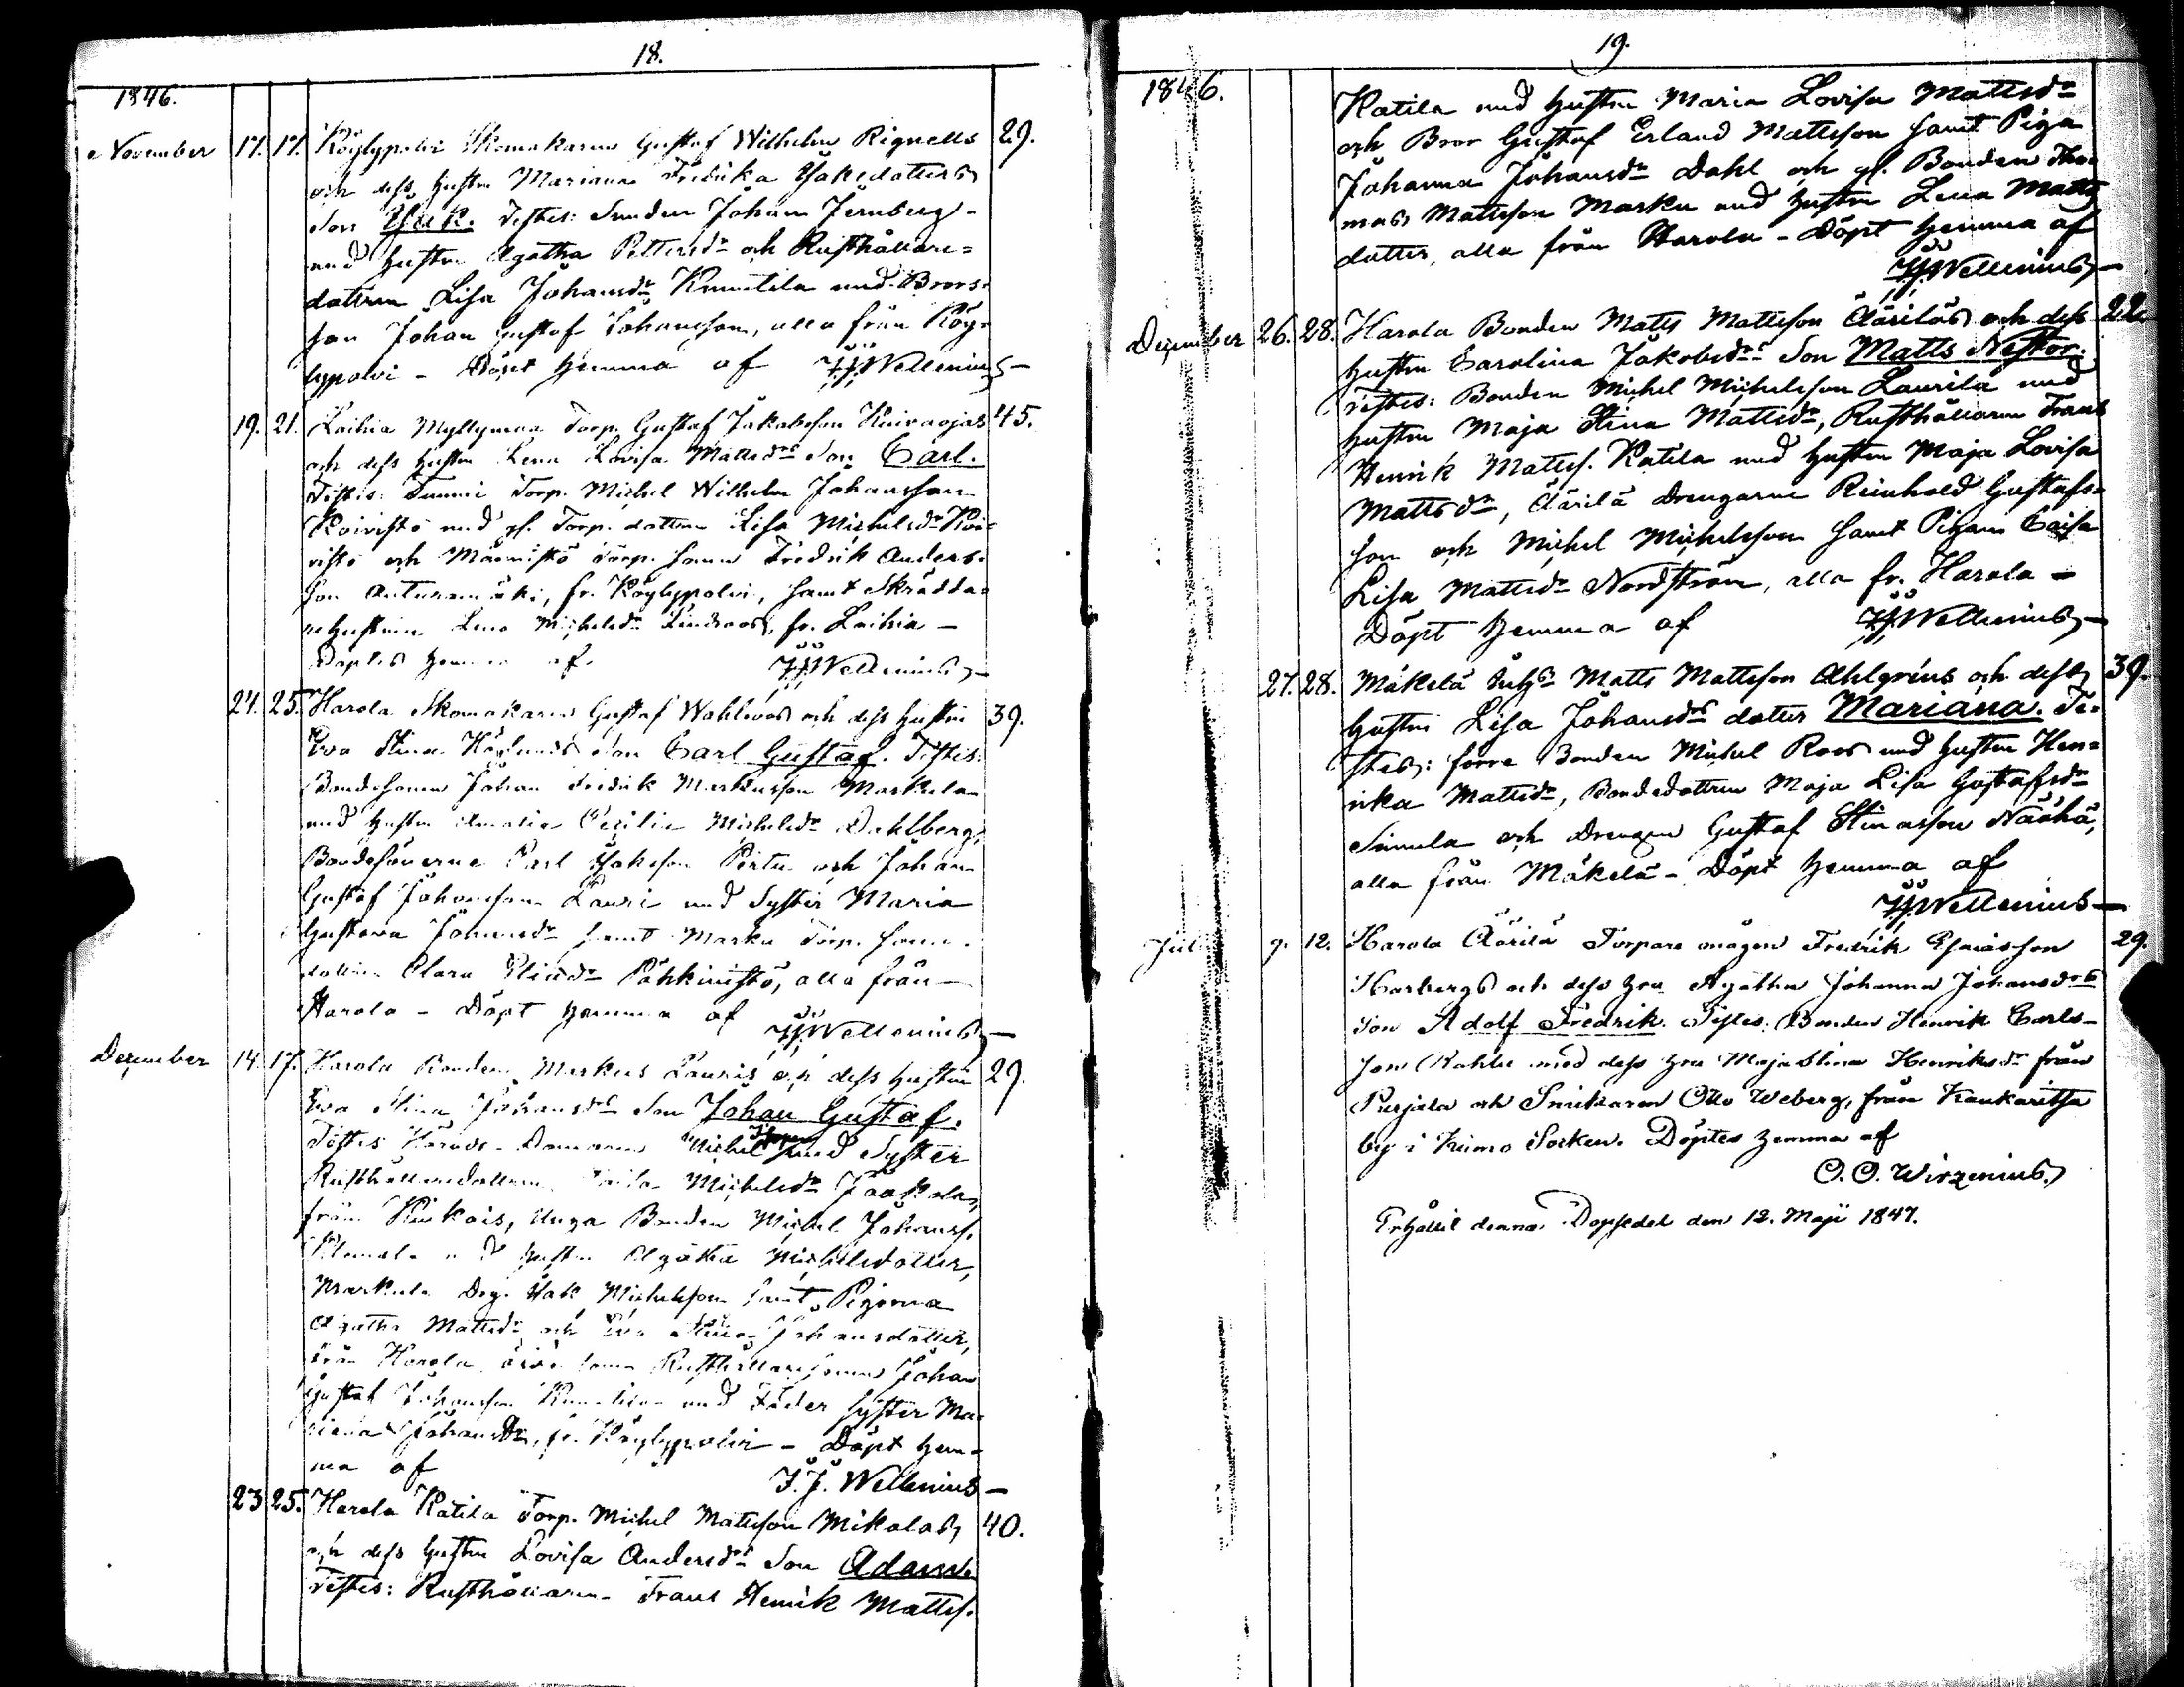 18.
1846.
November 17. 17. Köylypolvi Skomakaren Gustaf Wilhelm Rignells 29.
och dess hustru Mariana Fredrika Isaksdotters
Son Isak. Testes: Smeden Johan Jernberg
med hustru Agatha Pettersdr och Rusthållare=
dottren Lisa Johansdr Knuutila med Brors=
son Johan Gustaf Johansson, alla från Köy=
lypolvi - Döpt hemma af J.J. Wellenius
19. 21. Laihia Myllymaa Torp. Gustaf Jakobsson Kuivaojas 45.
och dess hustru Lena Lovisa Mattsdrs Son Carl.
Testes: Torp. Michel Wilhelm Johansson
Koivisto med gf. Torp. dottren Lisa Michelsdr Koi=
visto och Torp. sonen Fredrik Anders=
son Anturamäki, fr. Köylypolvi, samt Skrädda=
rehustrun Lena Michelsdr Lindroos, fr. Laihia -
Döptes hemma af J.J. Wellenius
24. 25. Harola Skomakaren Gustaf Wahlroos och dess hustru 39.
Eva Stina Höglunds Son Carl Gustaf. Testes:
Bondesonen Johan Fredrik Markusson Markula
med hustru Amalia Cecilia Michelsdr Dahlberg,
Bondesönerne Carl Isaksson Perttu och Johan
Gustaf Johansson Lauri med Syster Maria
Gustava Johansdr samt Marku Torp. sone=
dottren Clara Eliedr Pähkinistö, alla från
Harola - Döpt hemma af J.J. Wellenius
December 14. 17. Harola Bonden Markus Lauris och dess hustru 29.
Eva Stina Johansdrs Son Johan Gustaf.
Testes: Härads-Domaren Michel med Syster
Rusthållaredottren Michelsdr Jaakola,
från Kiukais, Unga Bonden Michel Johanss.
med hustru Agatha Michelsdotter,
Markula Drg. Isak Michelsson samt Pigorna
Agatha Mattsdr och Eva Stina Johansdotter,
från Harola Rusthållaresonen Johan
Gustaf Johansson Knuutila med Fader syster Ma=
riana Johansdr, fr. Köylypolvi - Döpt hem=
ma af J.J. Wellenius
23. 25. Harola Katila Torp. Michel Mattsson Mikolas 40.
och dess hustru Lovisa Andersdrs Son Adam.
Testes: Rusthållaren Frans Henrik Mattss.
19.
1846.
Katila med hustru Maria Lovisa Mattsdr
och Bror Gustaf Erland Mattsson samt Piga
Johanna Johansdr Dahl och gf. Bonden Tho=
mas Mattsson Marku med hustru Lena Matts
dotter, alla från Harola - Döpt hemma af
J.J. Wellenius
December 26. 28. Harola Bonden Matts Mattsson Ääriläs och dess 22.
hustru Carolina Jakobsdrs Son Matts Nestor.
Testes: Bonden Michel Michelsson Laurila med
hustru Maja Stina Mattsdr, Rusthållaren Frans
Henrik Mattss. Katila med hustru Maja Lovisa
Mattsdr, Äärilä Drengarne Reinhold Gustafs=
son och Michel Michelsson samt Pigan Caisa
Lisa Mattsdr Nordström, alla fr. Harola -
Döpt hemma af J.J. Wellenius
27. 28. Mäkelä Inhs Matts Mattsson Ahlgréns och dess 39.
hustru Lisa Johansdrs dotter Mariana. Te=
stes: förre Bonden Michel Roos med hustru Hen=
rika Mattsdr, Bondedottren Maja Lisa Gustafsdr
Simula och Drengen Gustaf Stinasson Näyhä,
alla från Mäkelä - Döpt hemma af
J.J. Wellenius
Juli 9. 12. Harola Äärilä Torpare mågen Fredrik Esaiasson 29.
Harbergs och dess hru Agatha Johanna Johansdrs
son Adolf Fredrik. Testes. Bonden Henrik Carls-
son med dess hru Maja Stina Henriksdr från
Purjala och Snickaren Otto Weberg, från Kaukaritsa
by i Kumo Socken. Döptes hemma af
O.O. Wirzenius.
Erhållit denna Dopsedel den 12. Maji 1847.